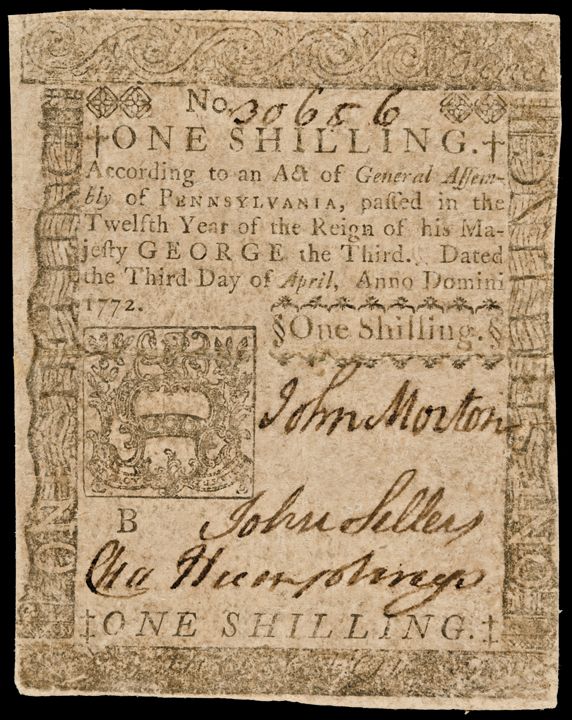 No. 30686
‡ONE SHILLING.‡
According to an Act of General Aſſem-
bly of PENNSYLVANIA, paſſed in the
Twelfth Year of the Reign of his Ma-
jeſty GEORGE the Third. Dated
the Third Day of April, Anno Domini
1772.
§One Shilling.§
John Morton
B
John Sellers
Cha Humphreys
‡ONE SHILLING.‡